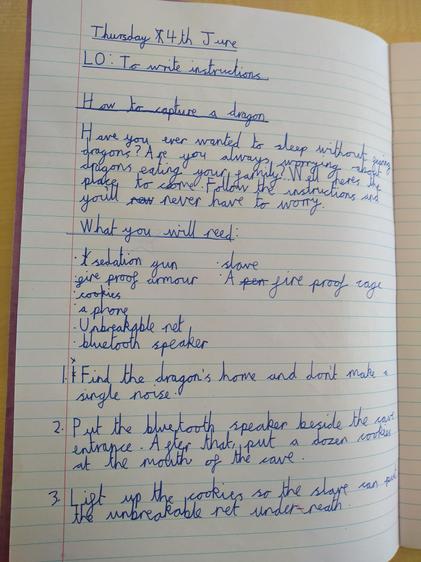 Thursday 14th June
LO: To write instructions
How to capture a dragon
Have you ever wanted to sleep without
dragons? Are you always worrying about
dragons eating your family? Well here's the
place to come. Follow the instructions and
you'll never have to worry.
What you will need:
· sedation gun · slave
· fire proof armour · A fire proof cage
· cookies
· a phone
· Unbreakable net
· bluetooth speaker
1. Find the dragon's home and don't make a
single noise.
2. Put the bluetooth speaker beside the cave
entrance. After that, put a dozen cookies
at the mouth of the cave.
3. Lift up the cookies so the slave can put
the unbreakable net under-neath.